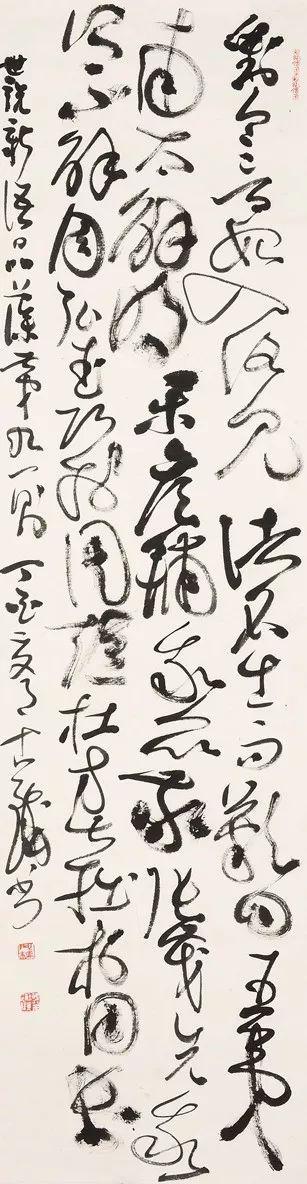 劉令言始入洛見諸名士而歎曰王夷
甫太解明樂彥輔我所敬張茂先我
所不解周弘武巧於用短杜方叔拙於用長
世說新語品藻第九一則 丁酉夏月 書